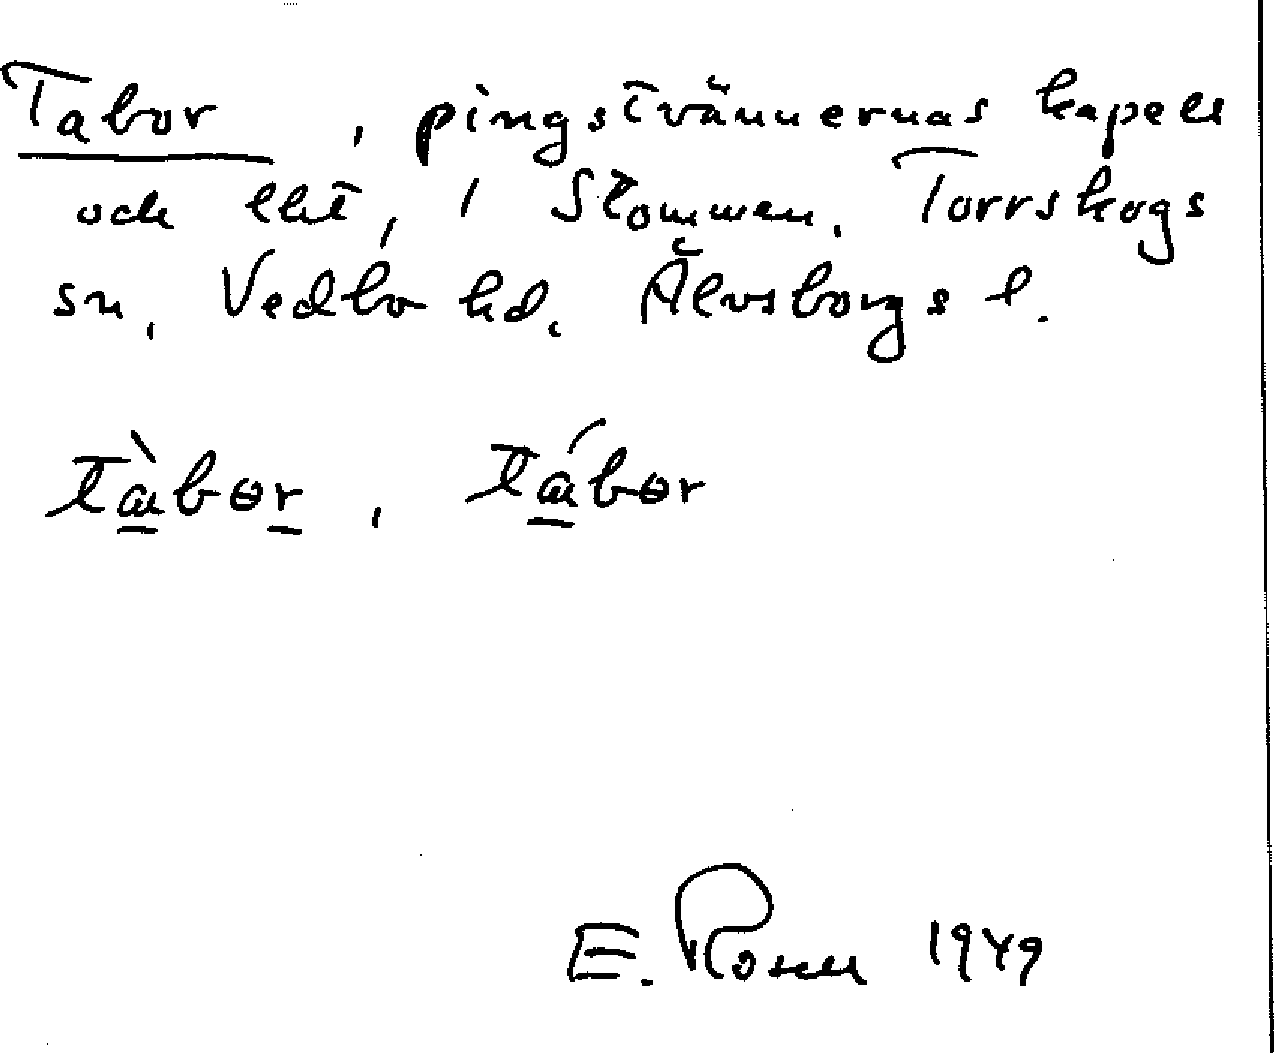 Tabor, pingstvännernas kapell
och lht, i Stommen, Torrskogs
sn, Vedbo hd, Älvsborgs l.
tàbər, tábər
E. Rosell 1949